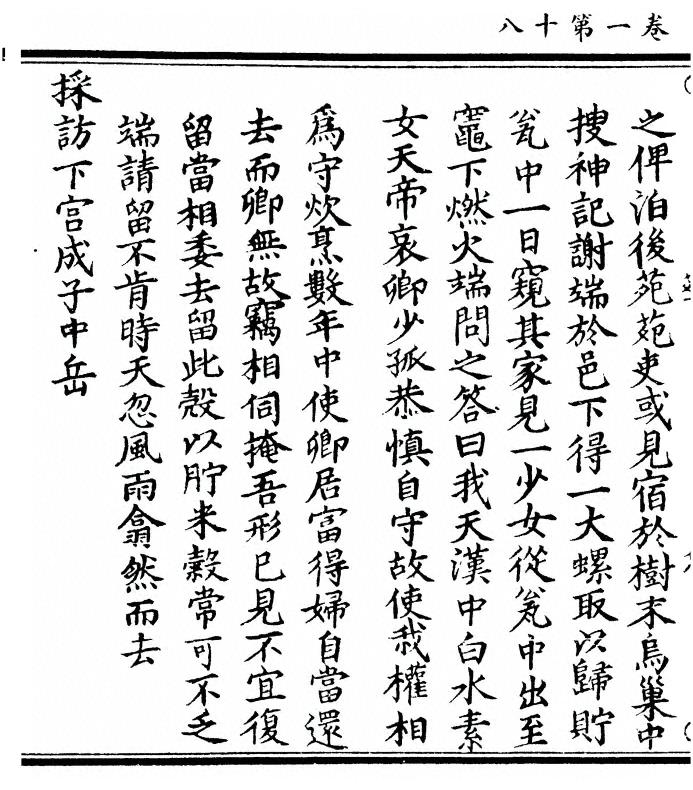 八十第一卷
之俾泊後苑苑吏或見宿於樹末烏巢中
搜神記謝端於邑下得一大螺取以歸貯
瓮中一日窺其家見一少女從瓮中出至
竈下燃火端問之答曰我天漢中白水素
女天帝哀卿少孤恭慎自守故使我權相
爲守炊烹數年中使卿居富得婦自當還
去而卿無故竊相伺掩吾形已見不宜復
留當相委去留此殼以貯米穀常可不乏
端請留不肯時天忽風雨翕然而去
採訪下宮成子中岳